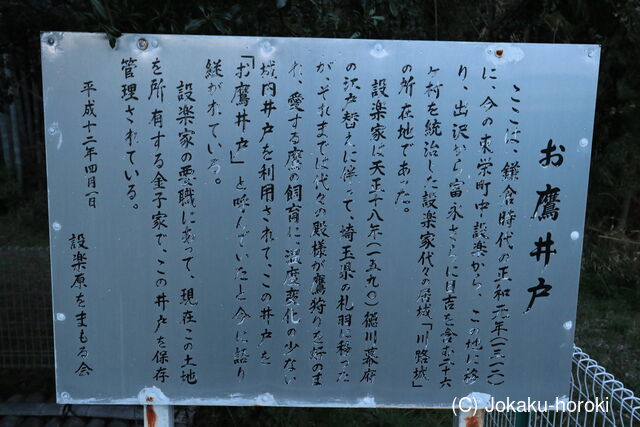 お鷹井戸
ここは、鎌倉時代の正和元年(一三一二)
に、今の東栄町中設楽から、この地に移
り、出沢から富永さらに日吉を含む二十六
ヶ村を統治した設楽家代々の居城「川路城」
の所在地であった。
設楽家は天正十八年(一五九〇)徳川幕府
の江戸替えに伴って、埼玉県の札羽に移った
が、それまでは代々の殿様が鷹狩りを好のま
れ、愛する鷹の飼育に、温度変化の少ない
城内井戸を利用されて、この井戸を
「お鷹井戸」と呼んでいたと今に語り
継がれている。
設楽家の要職にあって、現在この土地
を所有する金子家で、この井戸を保存
管理されている。
平成十二年四月一日
設楽原をまもる会
(C) Jokaku-horoki